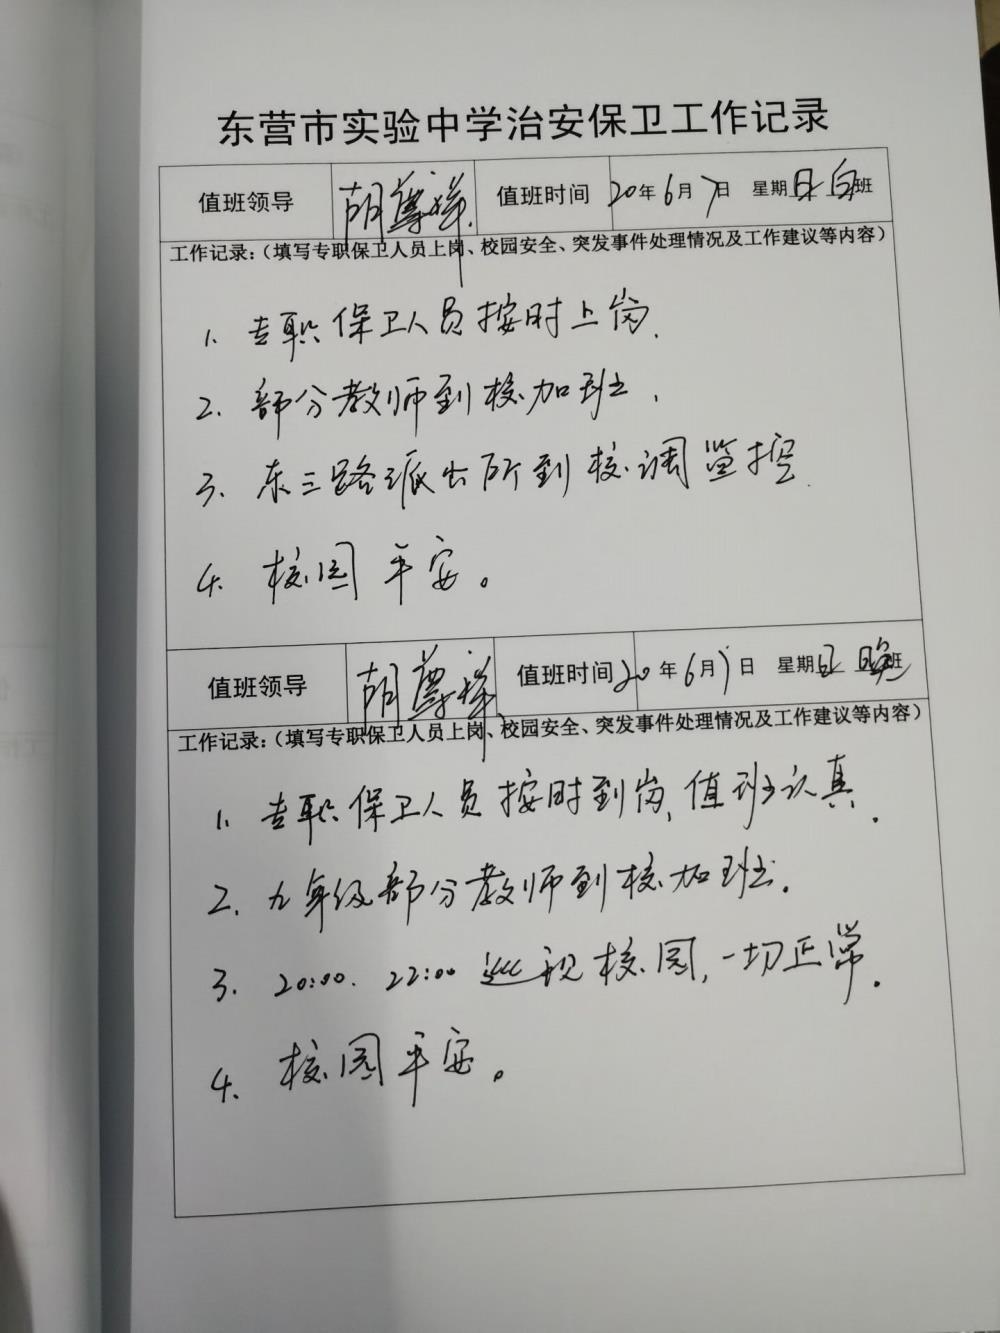 东营市实验中学治安保卫工作记录
值班领导 胡尊祥 值班时间 20年6月7日 星期日 白班
工作记录:(填写专职保卫人员上岗、校园安全、突发事件处理情况及工作建议等内容)
1. 专职保卫人员按时上岗.
2. 部分教师到校加班.
3. 东三路派出所到校调监控
4. 校园平安。
值班领导 胡尊祥 值班时间 20年6月7日 星期日 晚班
工作记录:(填写专职保卫人员上岗、校园安全、突发事件处理情况及工作建议等内容)
1. 专职保卫人员按时到岗,值班认真.
2. 九年级部分教师到校加班.
3. 20:00. 22:00 巡视校园,一切正常.
4. 校园平安。